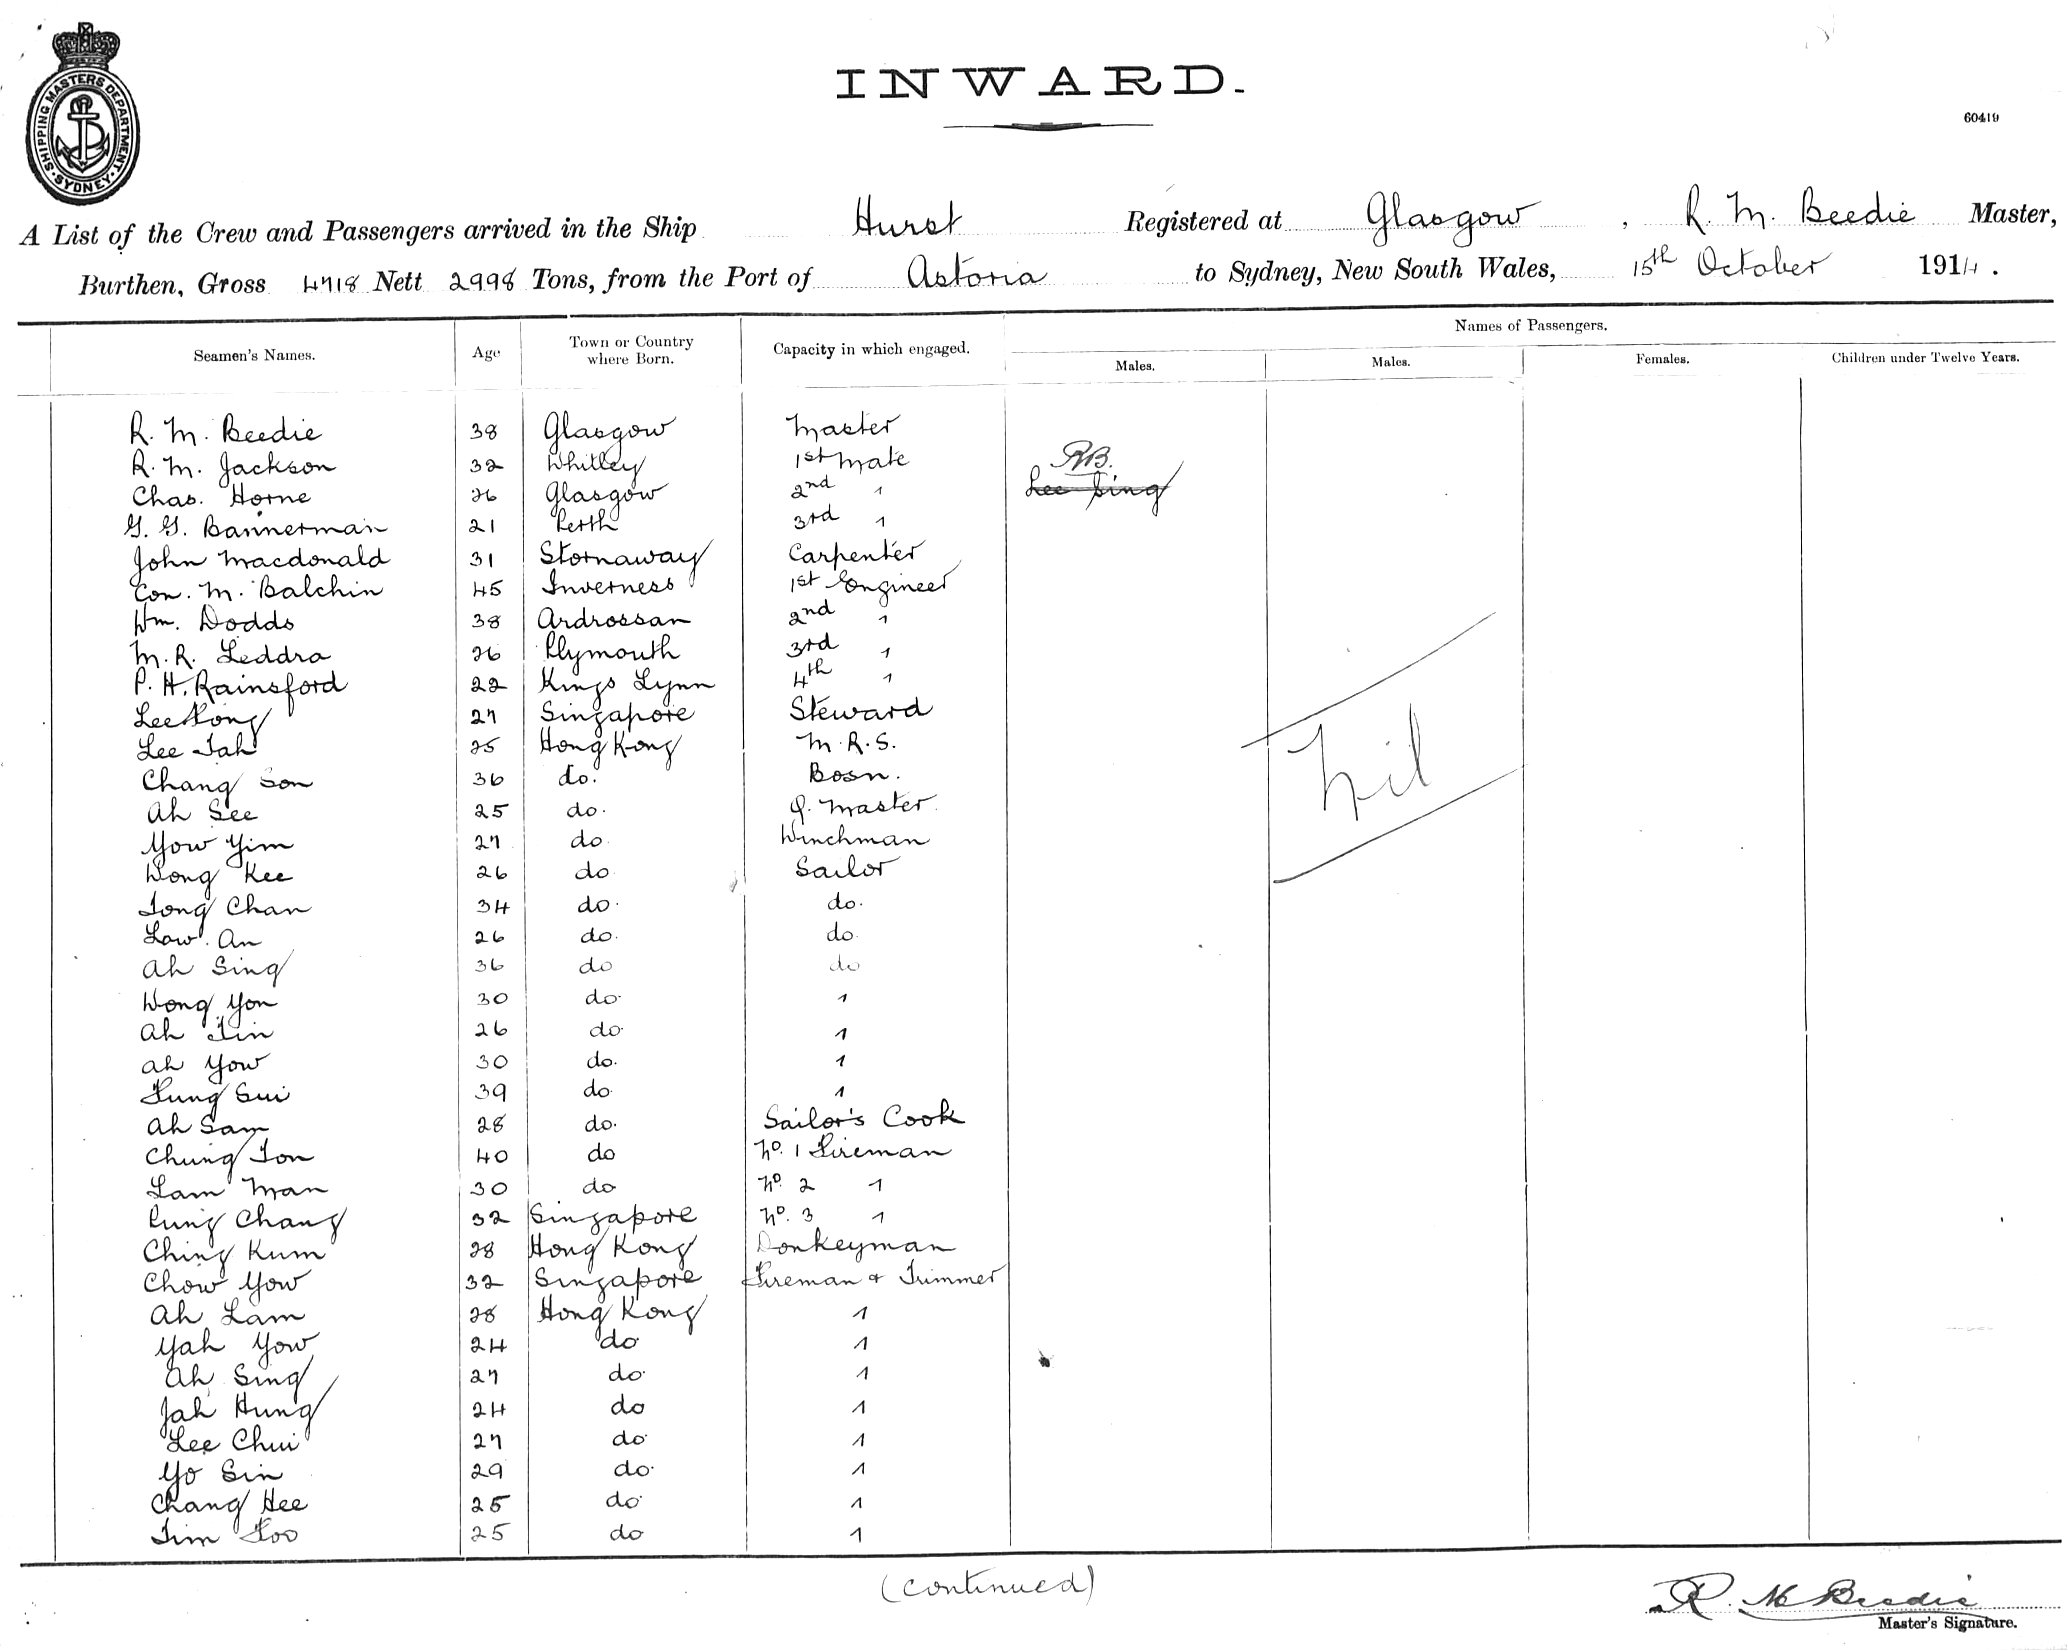 SHIPPING MASTERS DEPARTMENT. SYDNEY.
INWARD.
60419
A List of the Crew and Passengers arrived in the Ship Hurst Registered at Glasgow, R. M. Beedie Master,
Burthen, Gross 4718 Nett 2998 Tons, from the Port of Astoria to Sydney, New South Wales, 15th October 1914.
Names of Passengers.
Seamen's Names. Age Town or Country where Born. Capacity in which engaged. Males. Males. Females. Children under Twelve Years.
R. M. Beedie 38 Glasgow Master
R. M. Jackson 32 Whitley 1st Mate RB.
Chas. Horne 26 Glasgow 2nd " Lee Sing
G. G. Bannerman 21 Perth 3rd "
John Macdonald 31 Stornaway Carpenter
Con. M. Balchin 45 Inverness 1st Engineer
Wm. Dodds 38 Ardrossan 2nd "
M. R. Leddra 26 Plymouth 3rd "
P. H. Rainsford 22 Kings Lynn 4th "
Lee Kong 27 Singapore Steward
Lee Tah 25 Hong Kong M. R. S.
Chang Son 36 do. Bosn.
Ah See 25 do. Q. Master
Nil
Yow Yim 27 do. Winchman
Wong Kee 26 do Sailor
Tong Chan 34 do. do.
Low An 26 do. do.
Ah Sing 36 do do
Wong Yon 30 do. "
Ah Tin 26 do. "
Ah Yow 30 do. "
Fung Sui 39 do. "
Ah Sam 28 do. Sailor's Cook
Chung Ton 40 do No. 1 Fireman
Lam Man 30 do No. 2 "
Pung Chang 32 Singapore No. 3 "
Ching Kum 28 Hong Kong Donkeyman
Chow Yow 32 Singapore Fireman & Trimmer
Ah Lam 28 Hong Kong "
Yah Yow 24 do "
Ah Sing 27 do. "
Jah Hung 24 do "
Lee Chui 27 do. "
Yo Sin 29 do. "
Chang Hee 25 do. "
Tim Foo 25 do "
(continued)
R. M. Beedie
Master's Signature.